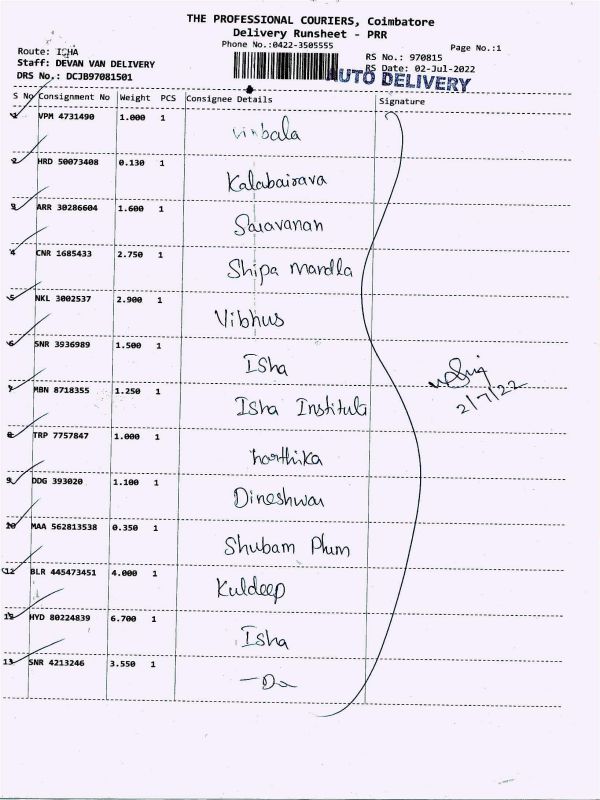 THE PROFESSIONAL COURIERS, Coimbatore
Delivery Runsheet - PRR
Phone No.:0422-3505555
Page No.:1
Route: ISHA
RS No.: 970815
Staff: DEVAN VAN DELIVERY
RS Date: 02-Jul-2022
DRS No.: DCJB97081501
AUTO DELIVERY
S No Consignment No Weight PCS Consignee Details Signature
1 VPM 4731490 1.000 1 Vinbala
2 HRD 50073408 0.130 1 Kalabairava
3 ARR 30286604 1.600 1 Saravanan
4 CNR 1685433 2.750 1 Shipa Mandla
5 NKL 3002537 2.900 1 Vibhus
6 SNR 3936989 1.500 1 Isha
7 MBN 8718355 1.250 1 Isha Institula
2/7/22
8 TRP 7757847 1.000 1 harthika
9 DDG 393020 1.100 1 Dineshwar
10 MAA 562813538 0.350 1 Shubam Plum
BLR 445473451 4.000 1 Kuldeep
12 HYD 80224839 6.700 1 Isha
13 SNR 4213246 3.550 1 -Do